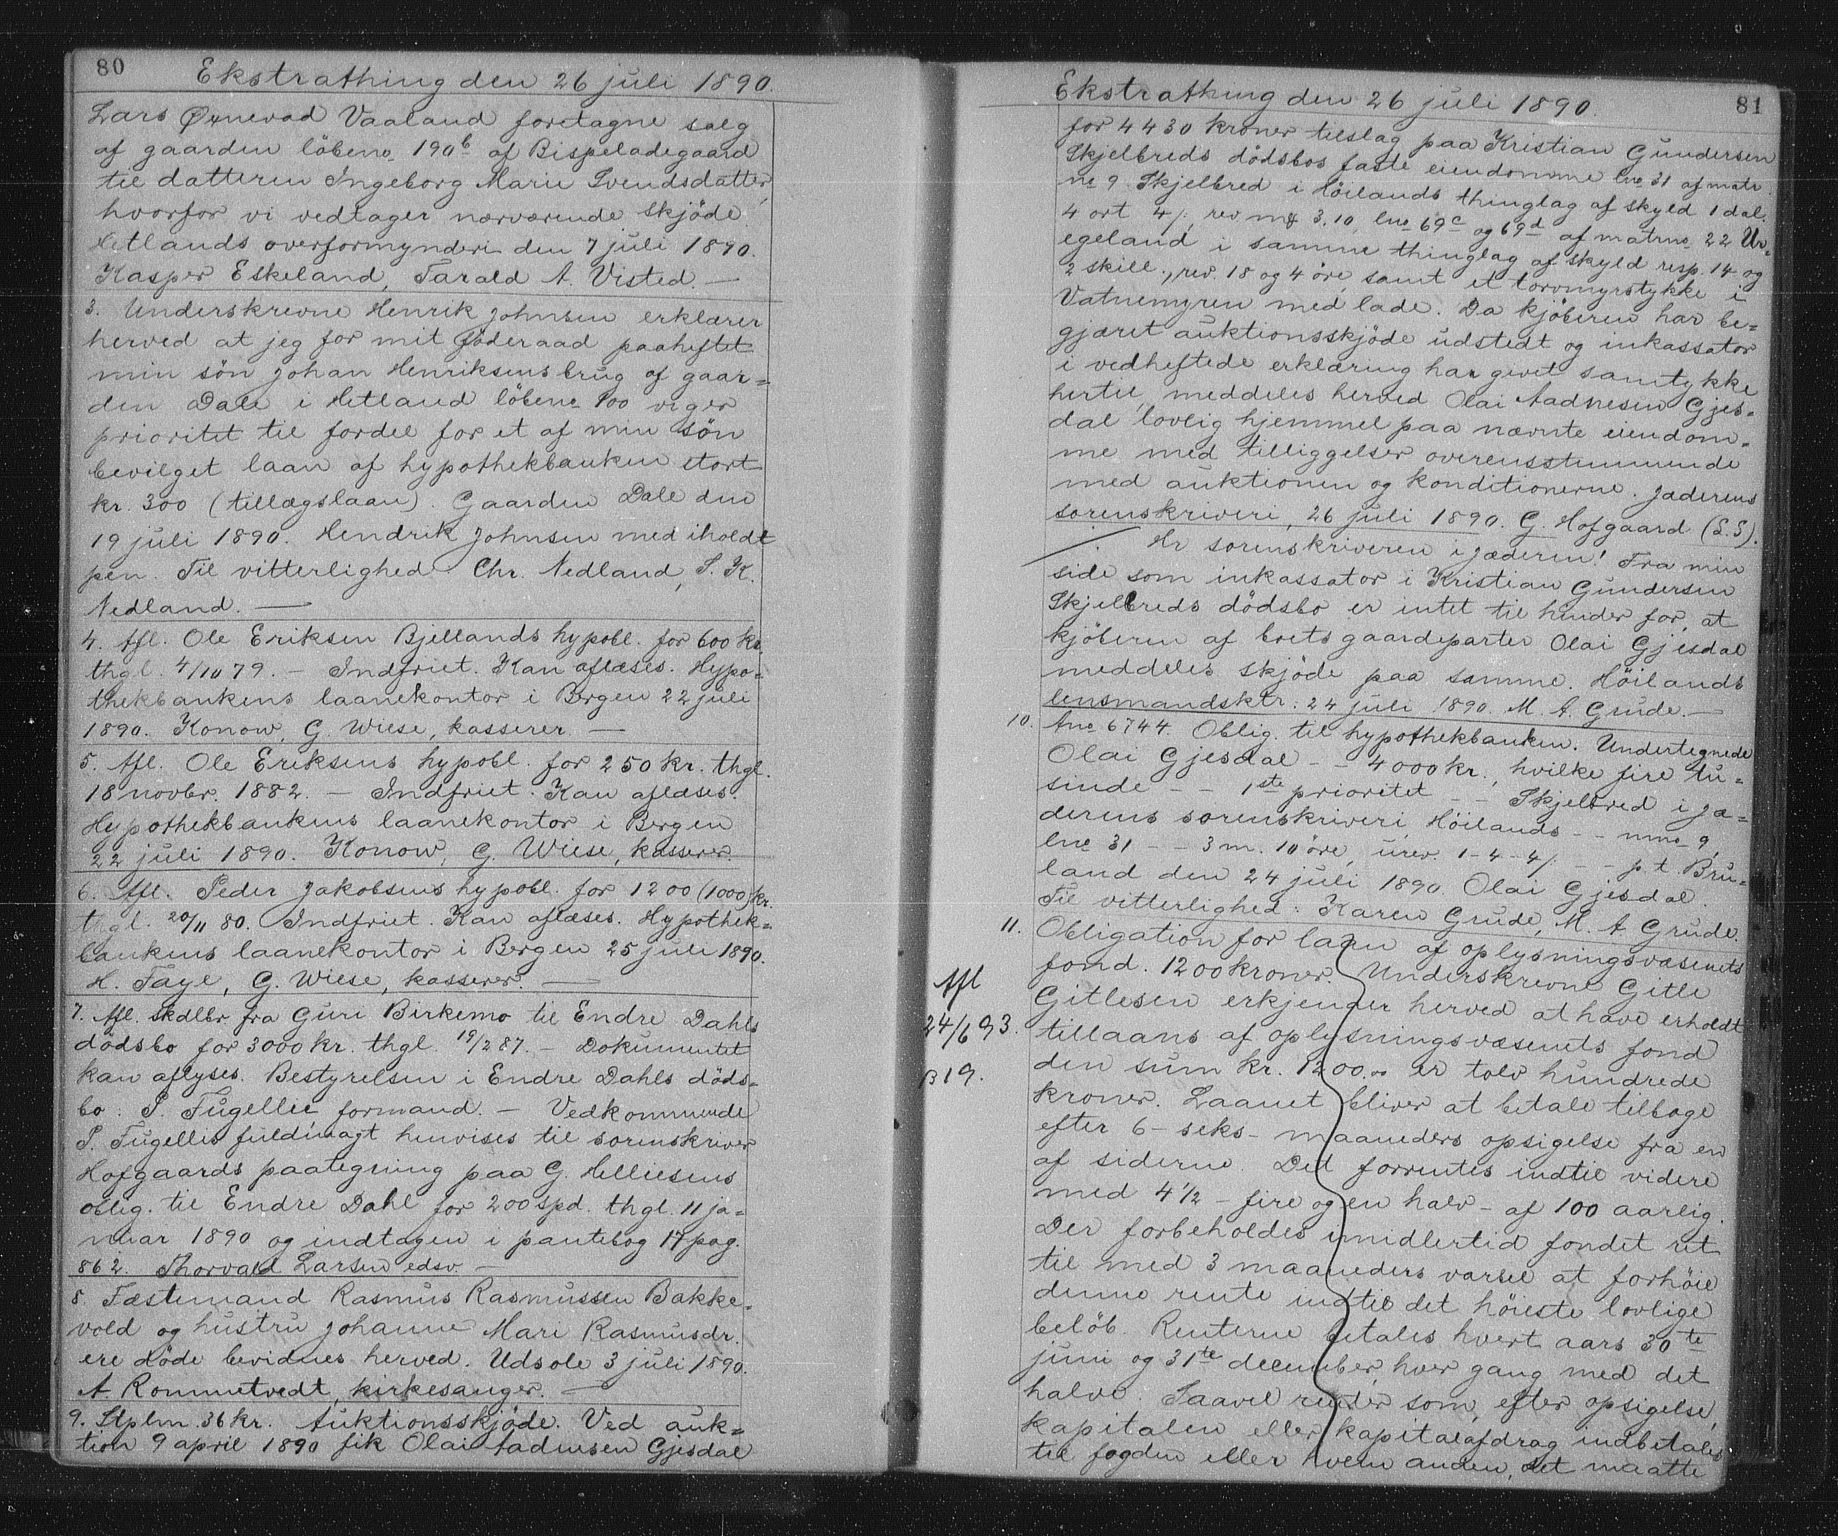 80
Ekstrathing den 26 juli 1890.
Lars Ørnevad Vaaland foretagne salg
af gaarden löbeno 190b af Bispeladegaard
til datteren Ingeborg Marie Svendsdatter,
hvorfor vi vedtager nærværende skjöde.
Hetlands overformynderi den 7 juli 1890.
Kasper Eskeland, Tarald A. Visted. —
3. Underskrevne Henrik Johnsen erklærer
herved at jeg for mit föderaad paaheftet
min sön Johan Henriksens brug af gaar=
den Dale i Hetland löbeno 100 viger
prioritet til fordel for et af min sön
bevilget laan af hypothekbanken stort
kr. 300 (tillægslaan). Gaarden Dale den
19 juli 1890. Hendrik Johnsen med iholdt
pen. Til vitterlighed: Chr. Nedland, S. K.
Nedland. —
4. Afl. Ole Eriksen Bjellands hypobl. for 600 kr.
thgl. 4/10 79. — Indfriet. Kan aflæses. Hypo=
thekbankens laanekontor i Bergen 22 juli
1890. Konow, G. Wiese, kasserer —
5. Afl. Ole Eriksens hypobl. for 250 kr. thgl.
18 novbr. 1882. — Indfriet. Kan aflæses.
Hypothekbankens laanekontor i Bergen
22 juli 1890. Konow, G. Wiese, kasserer.
6. Afl. Peder Jakobsens hypobl. for 1200 (1000) kr.
thgl. 20/11 80. Indfriet. Kan aflæses. Hypothek=
bankens laanekontor i Bergen 25 juli 1890.
H. Faye, G. Wiese, kasserer. —
7. Afl. skdlbr fra Guri Birkemo til Endre Dahls
dödsbo for 3000 kr. thgl. 19/2 87. — Dokumentet
kan aflyses. Bestyrelsen i Endre Dahls döds=
bo. P. Fugellie formand. — Vedkommende
P. Fugellis fuldmagt henvises til sorenskriver
Hofgaards paategning paa G. Helliesens
oblig. til Endre Dahl for 200 spd. thgl. 11 ja=
nuar 1890 og indtagen i pantebog 17 pag.
862. Thorvald Larsen edsv. —
8. Fæstemand Rasmus Rasmussen Bakke=
vold og hustru Johanne Mari Rasmusdr.
ere döde bevidnes herved. Udsole 3 juli 1890.
A. Rommetvedt, kirkesanger. —
9. Stplm. 36 kr. Auktionsskjöde. Ved auk=
tion 9 april 1890 fik Olai Aadnesen Gjesdal
81
Ekstrathing den 26 juli 1890.
for 4430 kroner tilslag paa Kristian Gundersen
Skjelbreds dödsbos faste eiendomme lno 31 af matr.
no 9. Skjelbred i Höilands thinglag af skyld 1 dal.
4 ort 4/, rev. mk 3,10, lno 69c og 69d af matrno 22 Ur=
egeland i samme thinglag af skyld resp. 14 og
2 skill., rev. 18 og 4 öre, samt et torvmyrstykke i
Vatnemyren med lade. Da kjöberen har be=
gjæret auktionsskjöde udstedt og inkassator
i vedheftede erklæring har givet samtykke
hertil, meddeles herved Olai Aadnesen Gjes=
dal lovlig hjemmel paa nævnte eiendom=
me med tilliggelser overensstemmende
med auktionen og konditionerne. Jæderens
sorenskriveri, 26 juli 1890. G. Hofgaard (L.S).
Hr sorenskriveren i Jæderen! Fra min
side som inkassator i Kristian Gundersen
Skjelbreds dödsbo er intet til hinder for, at
kjöberen af boets gaardeparter Olai Gjesdal
meddeles skjöde paa samme. Höilands
lensmandsktr. 24 juli 1890. M. A. Grude. —
10. Ano 6744. Oblig. til hypothekbanken. Undertegnede
Olai Gjesdal - - 4000 kr., hvilke fire tu=
sinde - - 1ste prioritet - - Skjelbred i Jæ=
derens sorenskriveri, Höilands - - mno 9,
lno 31 - - 3 m. 10 öre, urev. 1-4-4/ - - p. t. Bru=
land den 24 juli 1890. Olai Gjesdal.
Til vitterlighed: Karen Grude, M. A. Grude.
11. Obligation for laan af oplysningsvæsenets
fond. 1200 kroner. Underskrevne Gitle
Gitlesen erkjender herved at have erholdt
tillaans af oplysningsvæsenets fond
den sum kr. 1200.00 er tolv hundrede
kroner. Laanet bliver at betale tilbage
efter 6 - seks - maaneders opsigelse fra en
af siderne. Det forrentes indtil videre
med 4 1/2 - fire og en halv - af 100 aarlig.
Der forbeholdes imidlertid fondet ret
til med 3 maaneders varsel at forhöie
denne rente indtil det höieste lovlige
belöb. Renterne betales hvert aars 30te
juni og 31te december, hver gang med det
halve. Saavel renter som, efter opsigelse,
kapitalen eller kapitalafdrag indbetales
til fogden eller hvem anden, det maatte
Afl
24/6 93.
B 19.